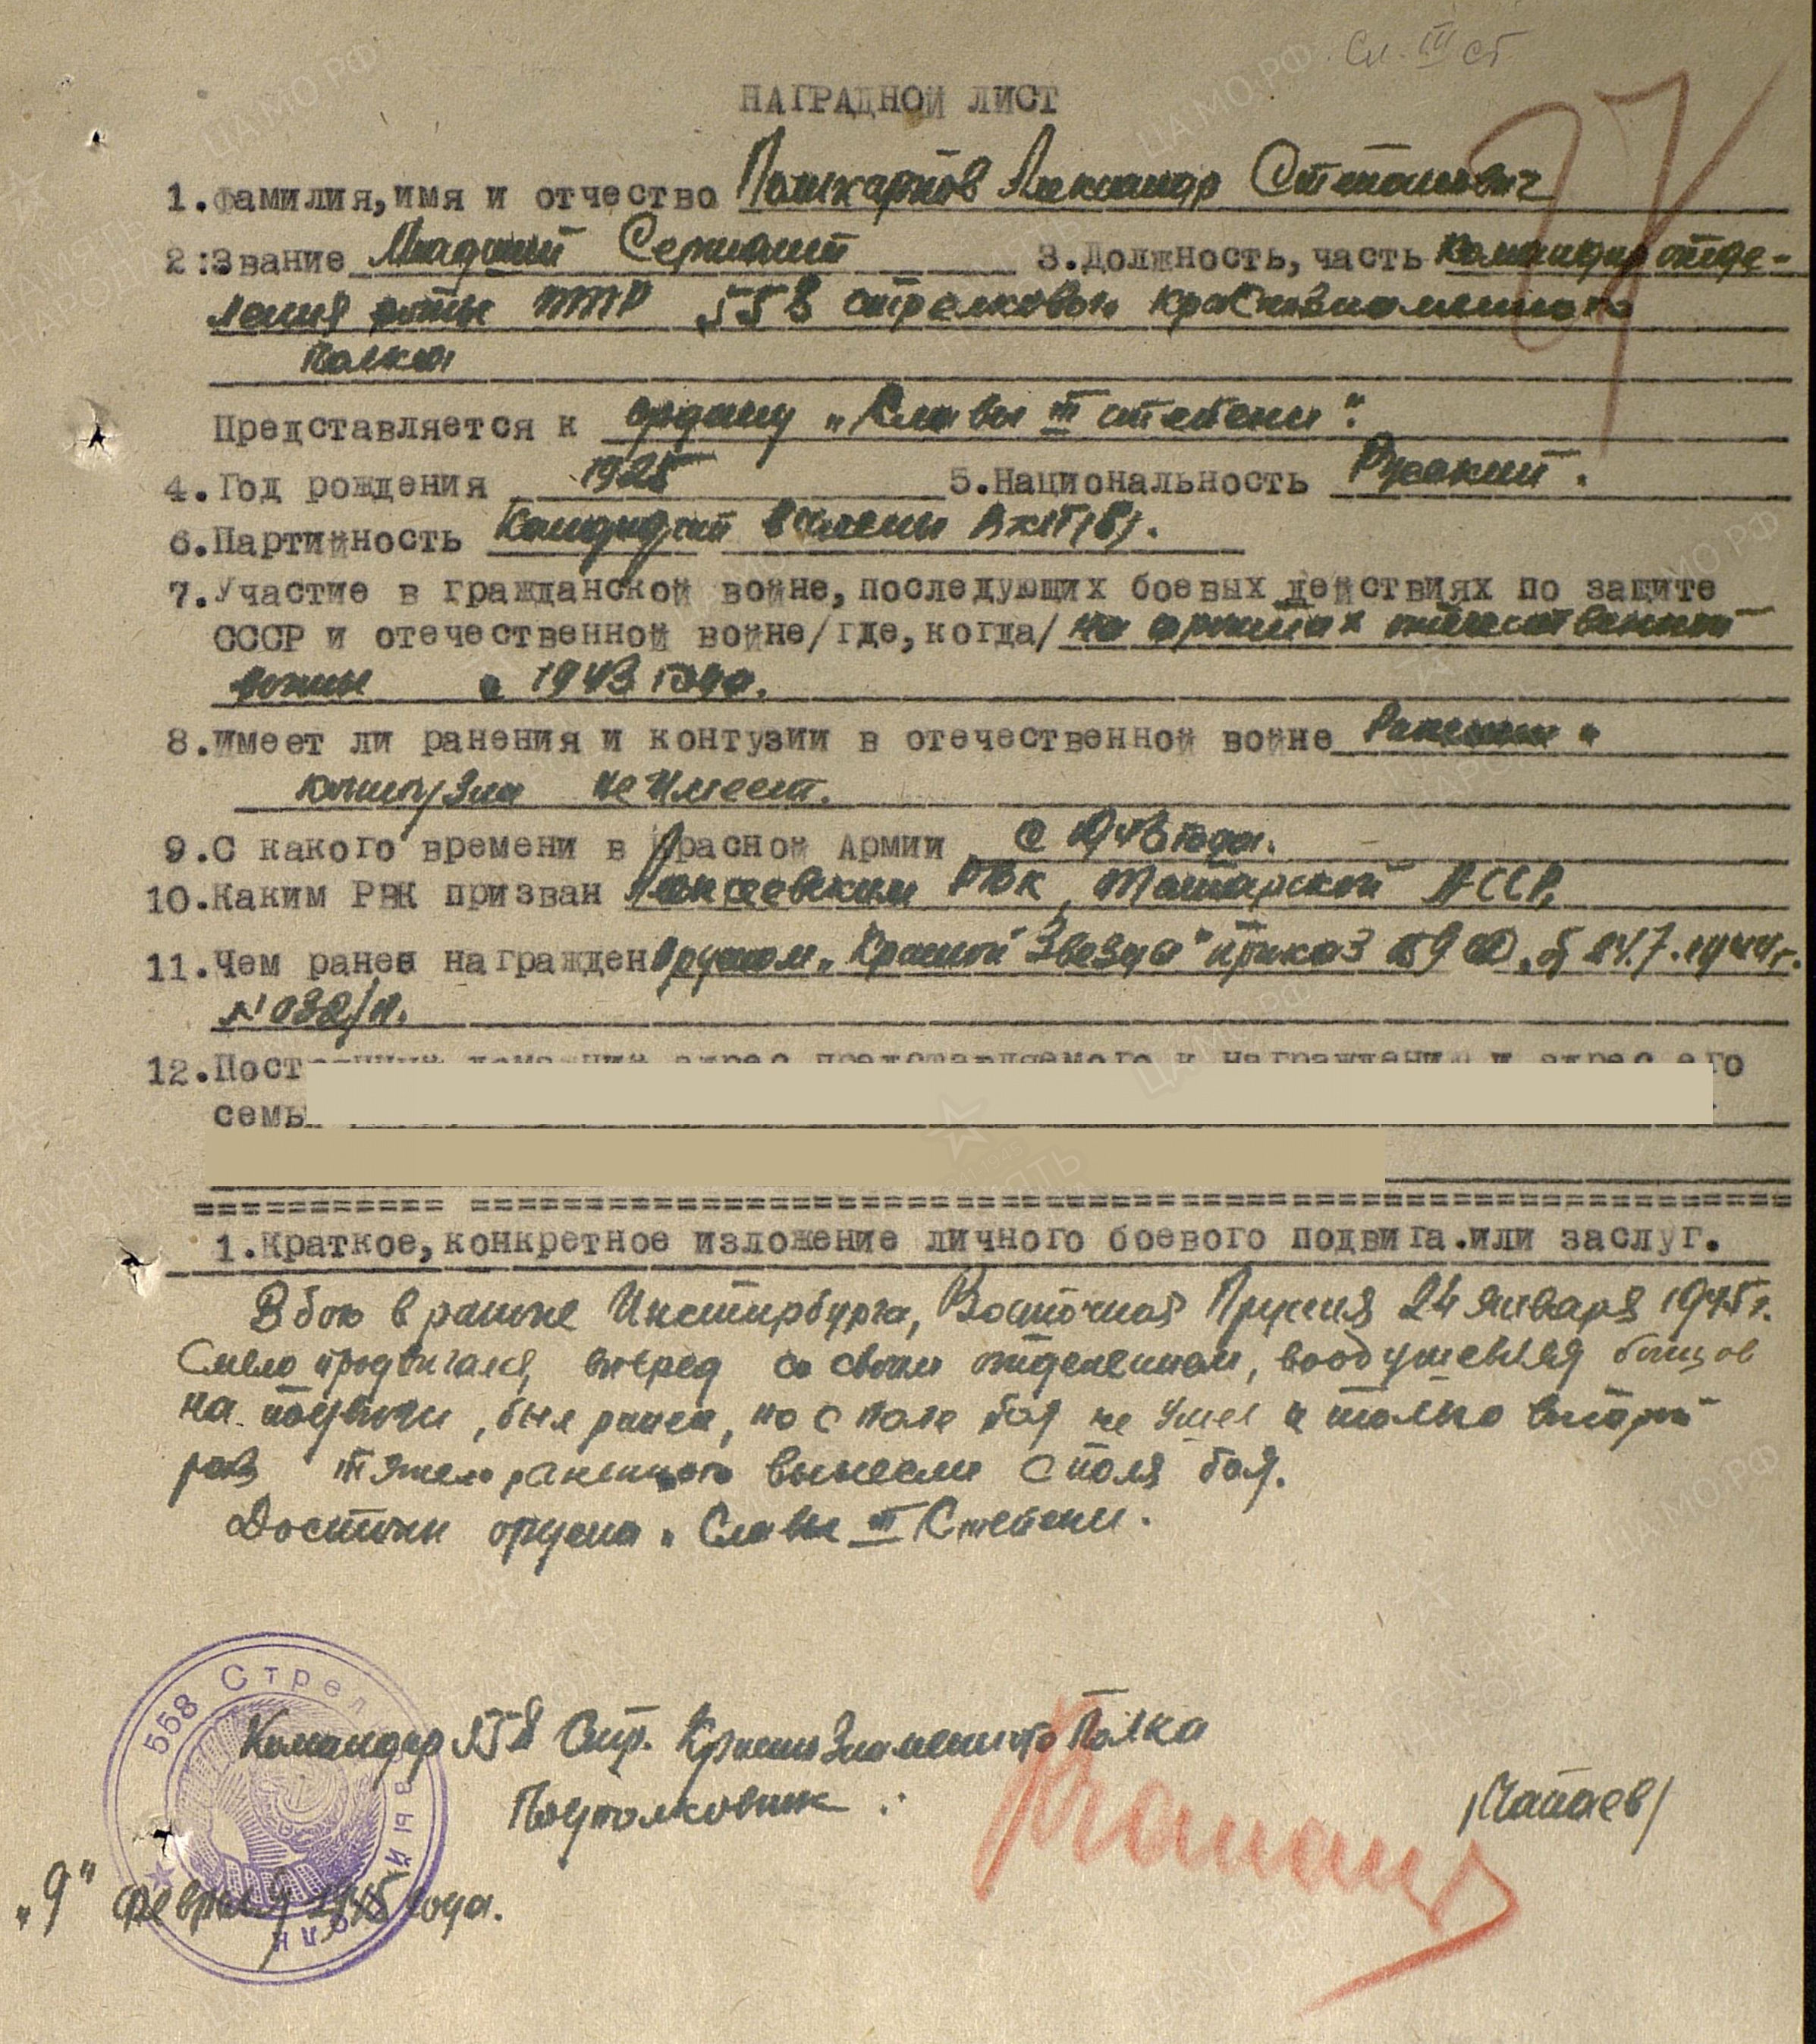 Сл. III ст
НАГРАДНОЙ ЛИСТ
1. Фамилия, имя и отчество Александр Степанович
2. Звание Младший Сержант 3. Должность, часть Командир отде-
ления роты ПТР 558 стрелкового краснознаменного
полка
Представляется к ордену „Славы III степени".
4. Год рождения 1925 5. Национальность Русский.
6. Партийность Кандидат в члены ВКП(б).
7. Участие в гражданской войне, последующих боевых действиях по защите
СССР и отечественной войне/где, когда/ на фронтах отечественной
войны с 1943 года.
8. Имеет ли ранения и контузии в отечественной войне Ранений и
контузии не имеет.
9. С какого времени в Красной Армии с 1943 года.
10. Каким РВК призван Алексеевским РВК, Татарской АССР,
11. Чем ранее награжден Орденом „Красной Звезда" приказ 24.7.1944г.
№ 032/н.
12. Постоянный домашний адрес представляемого к награждению и адрес его
семь
1. Краткое, конкретное изложение личного боевого подвига.или заслуг.
В бою в районе Инстирбурга, Восточная Пруссия 24 января 1945 г.
Смело продвигался, вперед со своим отделением, воодушевляя бойцов
на подвиги, был ранен, но с поле боя не ушел и только второй
раз тяжело раненного вынесли с поля боя.
Достоин ордена „Славы III Степени.
558 Стрелковый полк
Командир 558 Стр. Краснознаменного Полка
Подполковник
/Чапаев/
„9" февраля 1945 года.